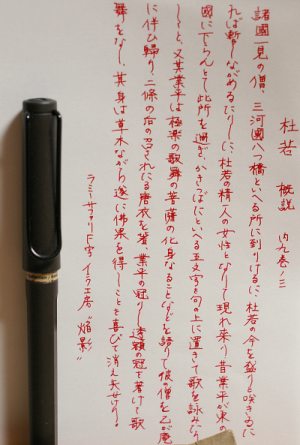 杜若 概説 内九巻ノ三
諸國一見の僧、三河國八つ橋といへる所に到りけるに、杜若の今を盛りと咲き居た
れば暫しながめ居たりしに、杜若の精人の女性となりて現れ来り昔業平が東の
國に下らんとて此所を過ぎ、かきつばたといへる五文字を句の上に置きて歌を詠みたり
しこと、又其業平は極楽の歌舞の菩薩の化身なることなどを語りて彼の僧を己が庵
に伴ひ帰り、二條の后の召されたる唐衣を着、業平の冠りし透額の冠を着けて歌
舞をなし、其身は草木ながら遂に佛果を得しことを喜びて消え失せけり。
ラミーサファリF字 インク工房 "焔影"